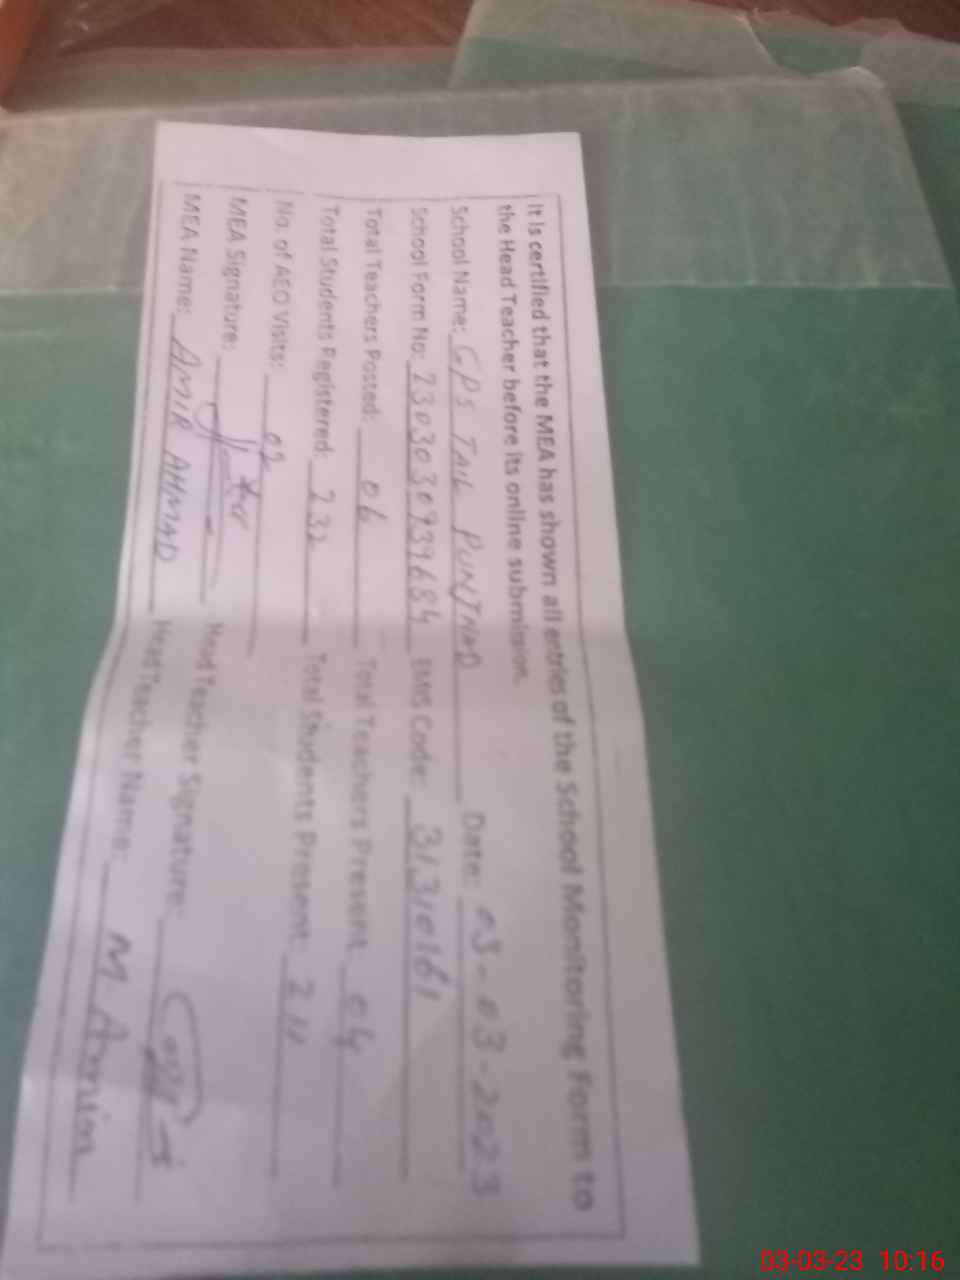 It is certified that the MEA has shown all entries of the School Monitoring Form to
the Head Teacher before its online submission.
School Name: GPS TAIL PUNJNAD Date: 03-03-2023
School Form No: 230303093968 4 EMIS Code: 31310161
Total Teachers Posted: 06 Total Teachers Present: 04
Total Students Registered: 232 Total Students Present: 211
No. of AEO Visits: 02
MEA Signature: Head Teacher Signature:
MEA Name: AMIR AHMAD Head Teacher Name: M Amin
03-03-23 10:16